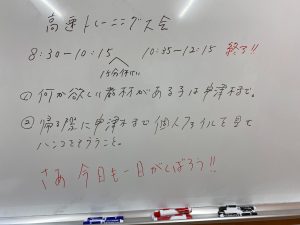 高速トレーニング大会
8:30-10:15 10:35-12:15 終了!!
15分休けい
① 何か欲しい教材がある子は中津木まで。
② 帰る際に中津木まで個人ファイルを見て
ハンコをもらうこと。
さあ 今日も一日がんばろう!!